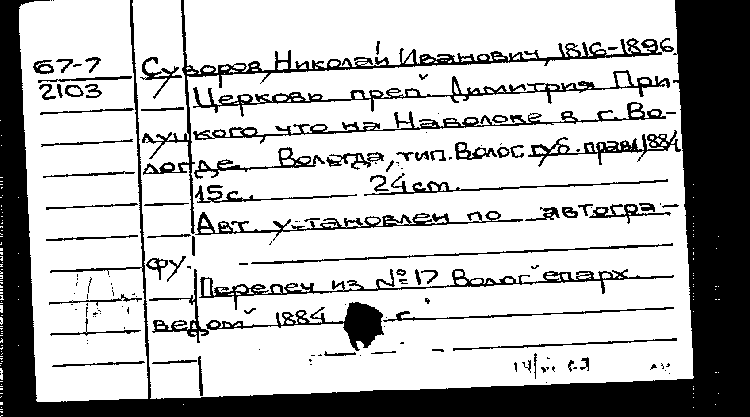 67-7 Суворов, Николай Иванович, 1816-1896
2103 Церковь преп. Димитрия При-
луцкого, что на Наволоке в г. Во-
логде. Вологда, тип. Волог. губ. правл, 1884
15 с. 24 cm.
Авт. установлен по автогра-
фу.
Перепеч из №17 Волог епарх.
ведом 1884 г.